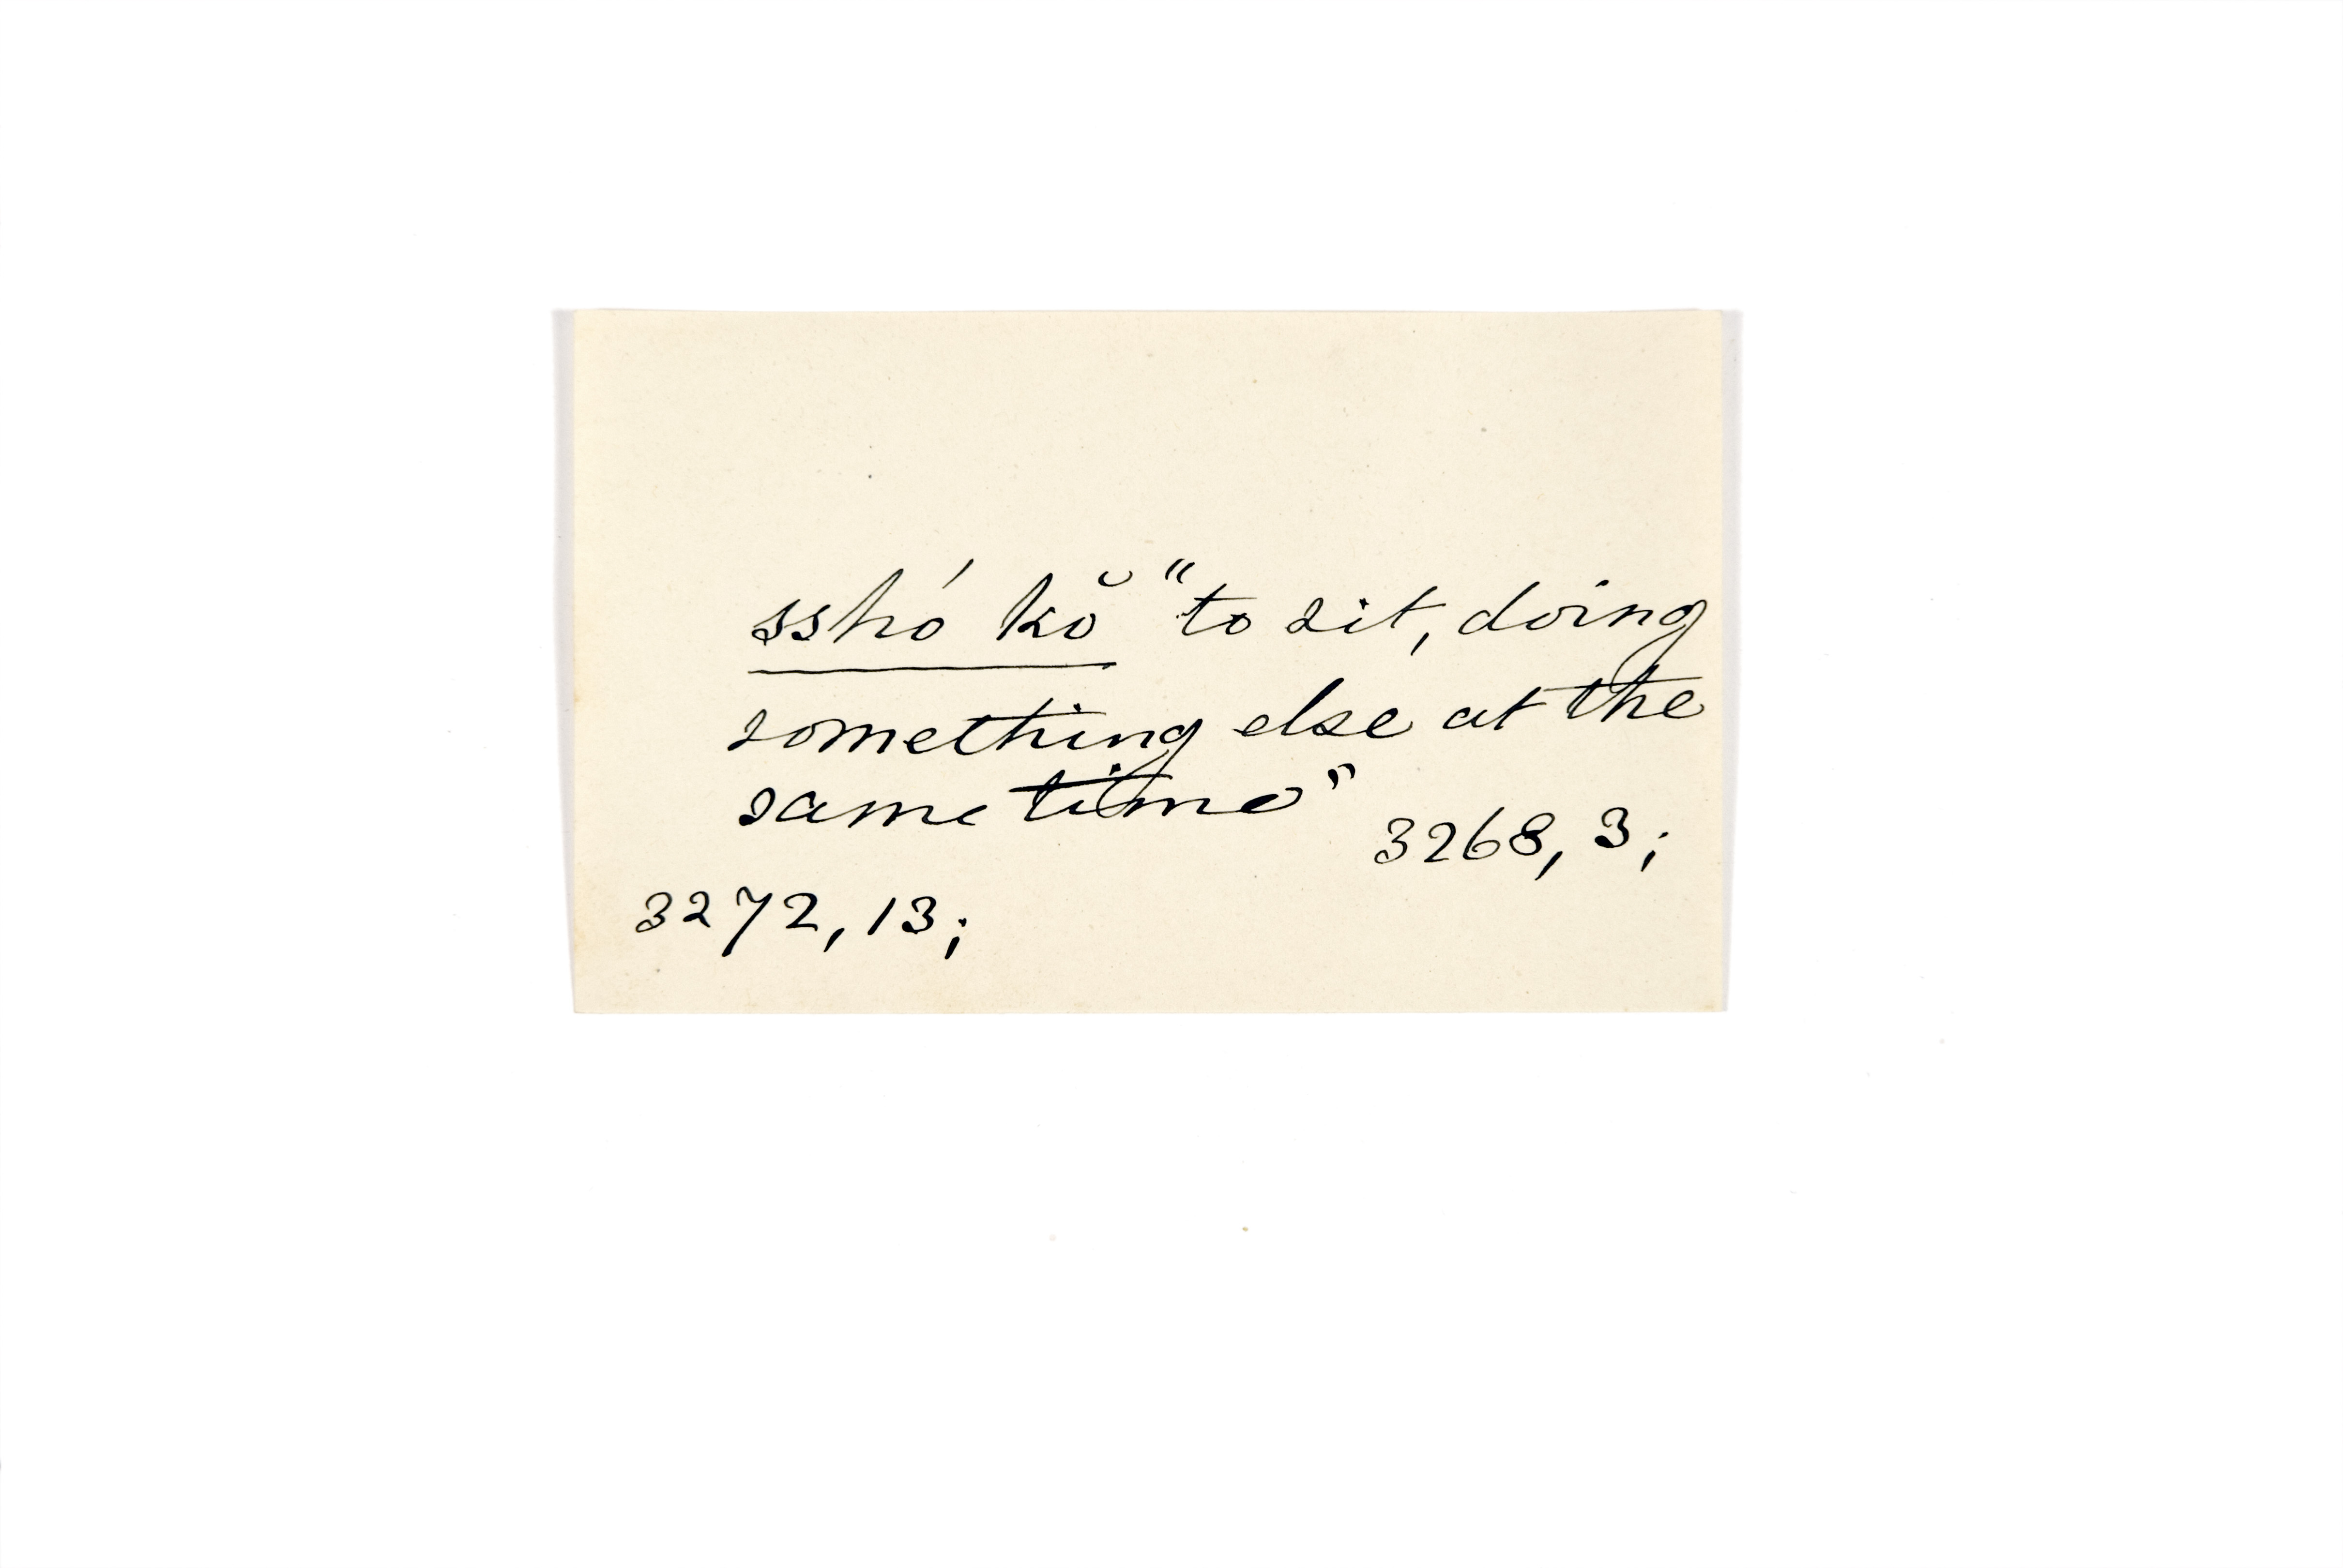 sshó kŏ "to sit, doing
something else at the
same time"
3268, 3;
3272, 13;